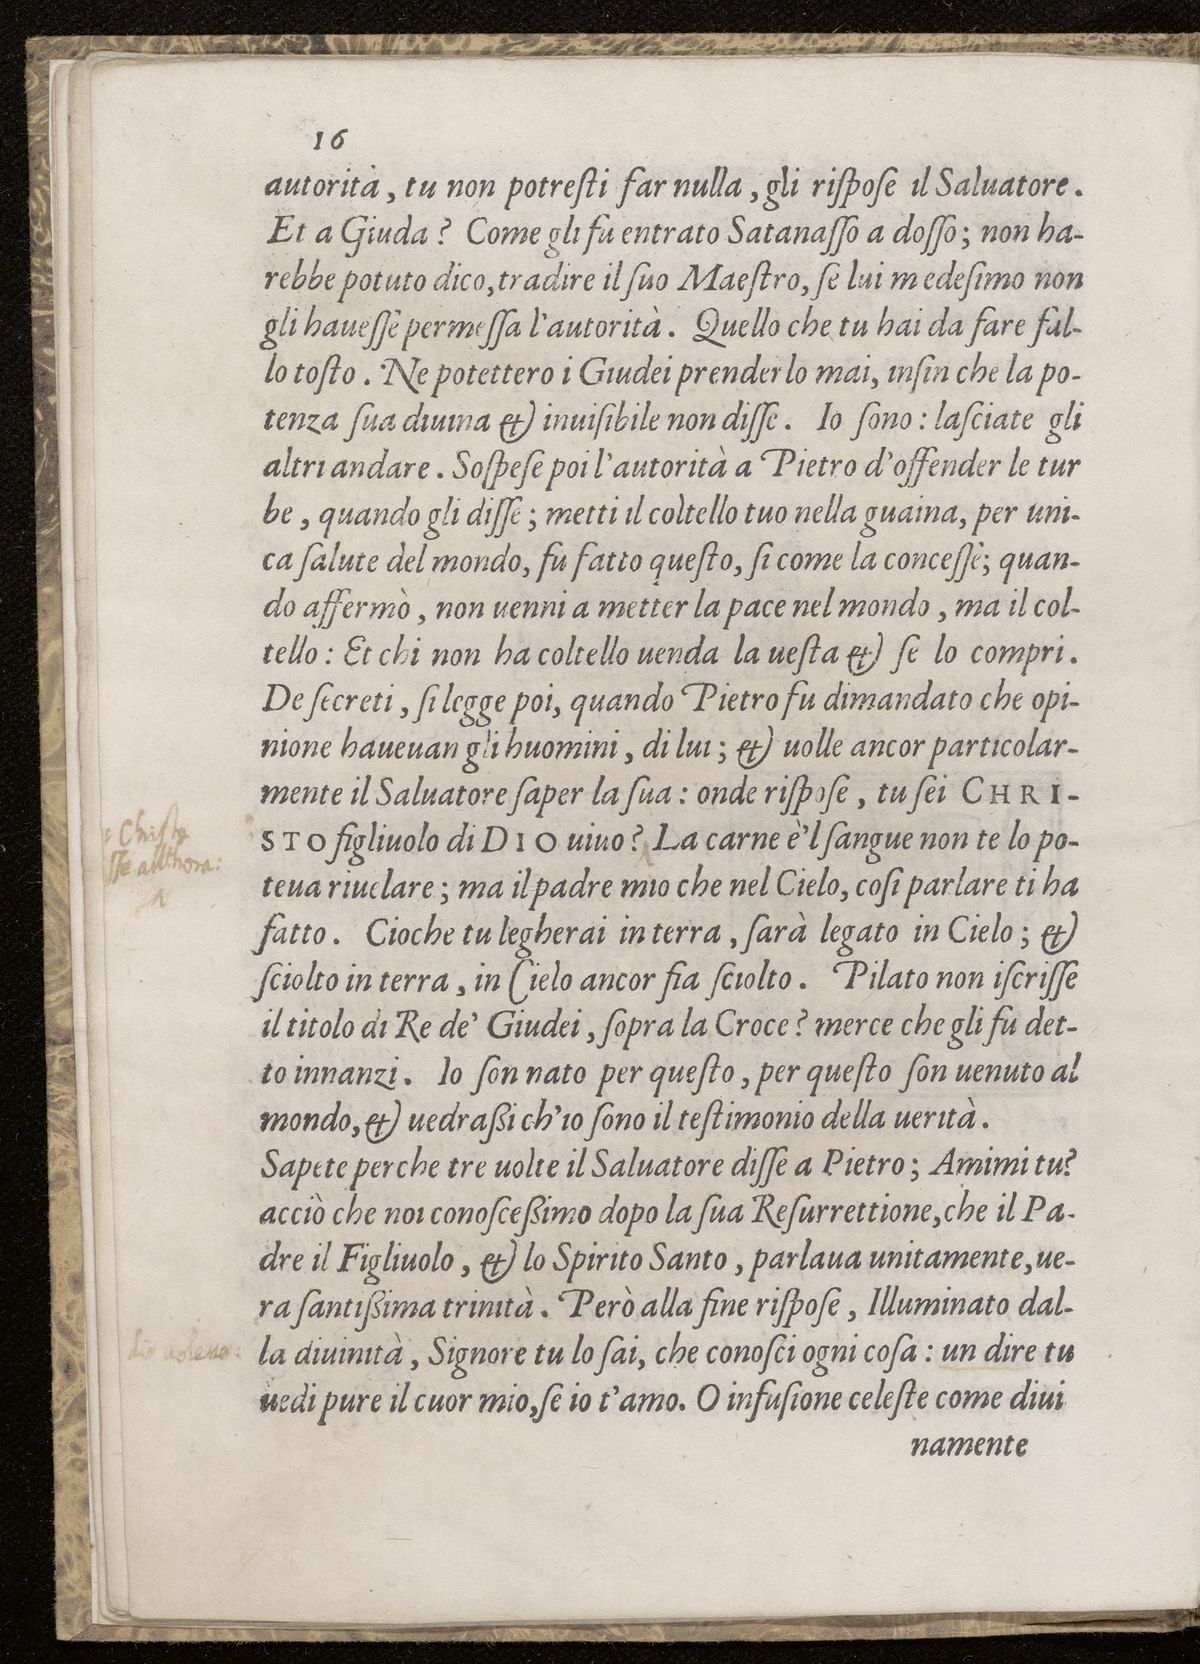 16
autorità, tu non potresti far nulla, gli rispose il Saluatore.
Et a Giuda? Come gli fu entrato Satanasso a dosso; non ha-
rebbe potuto dico, tradire il suo Maestro, se lui medesimo non
gli hauesse permessa l'autorità. Quello che tu hai da fare fal-
lo tosto. Ne potettero i Giudei prenderlo mai, insin che la po-
tenza sua diuina & inuisibile non disse. Io sono: lasciate gli
altri andare. Sospese poi l'autorità a Pietro d'offender le tur
be, quando gli disse; metti il coltello tuo nella guaina, per uni-
ca salute del mondo, fu fatto questo, si come la concesse; quan-
do affermò, non uenni a metter la pace nel mondo, ma il col-
tello: Et chi non ha coltello uenda la uesta & se lo compri.
De secreti, si legge poi, quando Pietro fu dimandato che opi-
nione haueuan gli huomini, di lui; & uolle ancor particolar-
mente il Saluatore saper la sua: onde rispose, tu sei CHRI-
STO figliuolo di DIO uiuo? La carne è'l sangue non te lo po-
teua riuelare; ma il padre mio che nel Cielo, cosi parlare ti ha
fatto. Cioche tu legherai in terra, sarà legato in Cielo; &
sciolto in terra, in Cielo ancor fia sciolto. Pilato non iscrisse
il titolo di Re de' Giudei, sopra la Croce? merce che gli fu det-
to innanzi. Io son nato per questo, per questo son uenuto al
mondo, & uedraßi ch'io sono il testimonio della uerità.
Sapete perche tre uolte il Saluatore disse a Pietro; Amimi tu?
acciò che noi conosceßimo dopo la sua Resurrettione, che il Pa-
dre il Figliuolo, & lo Spirito Santo, parlaua unitamente, ue-
ra santißima trinità. Però alla fine rispose, Illuminato dal-
la diuinità, Signore tu lo sai, che conosci ogni cosa: un dire tu
uedi pure il cuor mio, se io t'amo. O infusione celeste come diui
namente